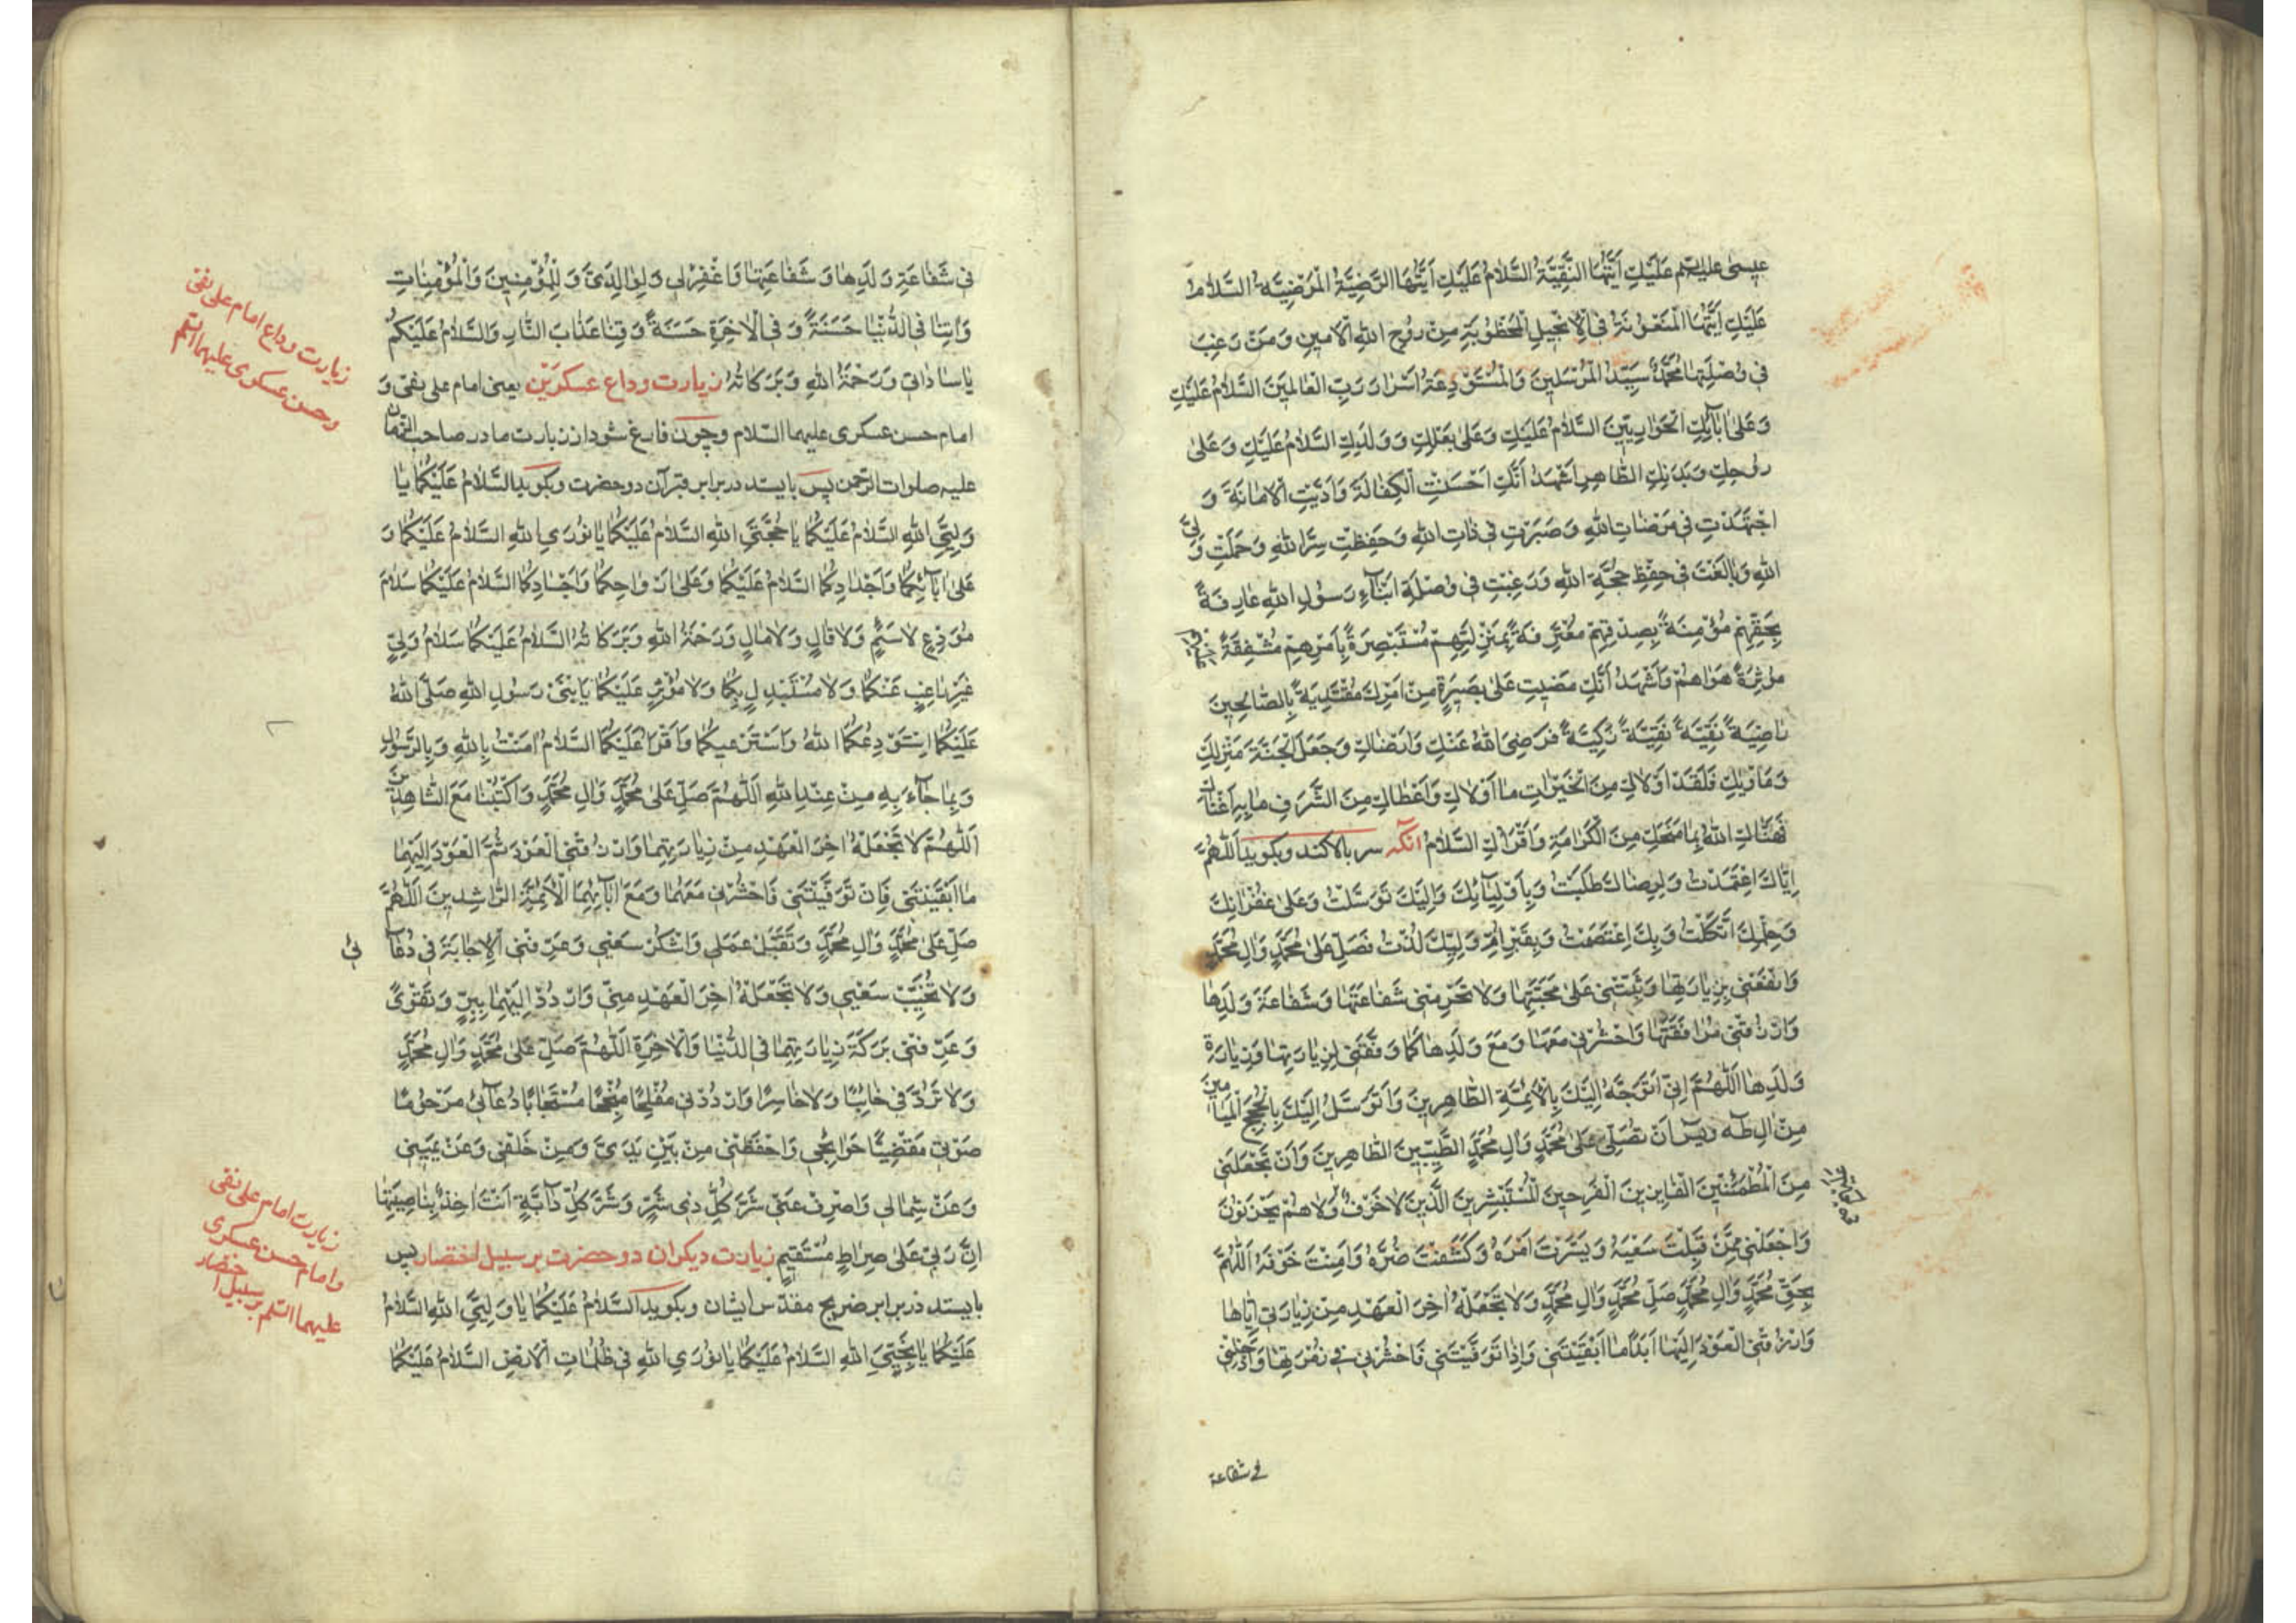 عیسی علیهم عَلَیْكِ اَیَّتُهَا النَّقِیَّةُ السَّلامُ عَلَیْكِ اَیَّتُهَا الرَّضِیَّةُ الْمَرْضِیَّةُ السَّلامُ
عَلَیْكِ اَیَّتُهَا الْمَنْعُوتَةُ فِی الْاِنْجِیلِ الْمَخْطُوبَةِ مِنْ رُوحِ اللهِ الْاَمِینِ وَمَنْ رَغِبَ
فِی وُصْلَتِهَا مُحَمَّدٌ سَیِّدُ الْمُرْسَلِینَ وَالْمُسْتَوْدِعَةُ اَسْرَارَ رَبِّ الْعَالَمِینَ السَّلامُ عَلَیْكِ
وَعَلیٰ اٰبآئِكِ الْحَوَارِیِّینَ السَّلامُ عَلَیْكِ وَعَلیٰ بَعْلِكِ وَوَلَدِكِ السَّلامُ عَلَیْكِ وَعَلیٰ
رُوحِكِ وَبَدَنِكِ الطَّاهِرِ اَشْهَدُ اَنَّكِ اَحْسَنْتِ الْكَفَالَةَ وَاَدَّیْتِ الْاَمَانَةَ وَ
اجْتَهَدْتِ فِی مَرْضَاتِ اللهِ وَصَبَرْتِ فِی ذَاتِ اللهِ وَحَفِظْتِ سِرَّ اللهِ وَحَمَلْتِ وَلِیَّ
اللهِ وَبَالَغْتِ فِی حِفْظِ حُجَّةِ اللهِ وَرَغِبْتِ فِی وُصْلَةِ اَبْنَآءِ رَسُولِ اللهِ عَارِفَةً
بِحَقِّهِمْ مُؤْمِنَةً بِصِدْقِهِمْ مُعْتَرِفَةً بِمَنْزِلَتِهِمْ مُسْتَبْصِرَةً بِاَمْرِهِمْ مُشْفِقَةً عَلَیْهِمْ
مُؤْثِرَةً هَوَاهُمْ وَاَشْهَدُ اَنَّكِ مَضَیْتِ عَلیٰ بَصِیرَةٍ مِنْ اَمْرِكِ مُقْتَدِیَةً بِالصَّالِحِینَ
رَاضِیَةً نَقِیَّةً تَقِیَّةً زَكِیَّةً فَرَضِیَ اللهُ عَنْكِ وَاَرْضَاكِ وَجَعَلَ الْجَنَّةَ مَنْزِلَكِ
وَمَاْوٰیكِ فَلَقَدْ اَوْلَاكِ مِنَ الْخَیْرَاتِ مَا اَوْلَاكِ وَاَعْطَاكِ مِنَ الشَّرَفِ مَا بِهِ اَغْنَاكِ
فَهَنَّاكِ اللهُ بِمَا مَنَحَكِ مِنَ الْكَرَامَةِ وَاَقْرَاُكِ السَّلامُ آنکه سر بالا کند و بکوید اَللّٰهُمَّ
اِیَّاكَ اعْتَمَدْتُ وَلِرِضَاكَ طَلَبْتُ وَبِاَوْلِیَآئِكَ وَاِلَیْكَ تَوَسَّلْتُ وَعَلیٰ غُفْرَانِكَ
وَحِلْمِكَ اتَّكَلْتُ وَبِكَ اعْتَصَمْتُ وَبِقَبْرِ اُمِّ وَلِیِّكَ لُذْتُ فَصَلِّ عَلیٰ مُحَمَّدٍ وَاٰلِ مُحَمَّدٍ
وَانْفَعْنِی بِزِیَارَتِهَا وَثَبِّتْنِی عَلیٰ مَحَبَّتِهَا وَلَا تَحْرِمْنِی شَفَاعَتَهَا وَشَفَاعَةَ وَلَدِهَا
وَارْزُقْنِی مُرَافَقَتَهَا وَاحْشُرْنِی مَعَهَا وَمَعَ وَلَدِهَا كَمَا وَفَّقْتَنِی لِزِیَارَتِهَا وَزِیَارَةِ
وَلَدِهَا اَللّٰهُمَّ اِنِّی اَتَوَجَّهُ اِلَیْكَ بِالْاَئِمَّةِ الطَّاهِرِینَ وَاَتَوَسَّلُ اِلَیْكَ بِالْحُجَجِ الْمَیَامِینَ
مِنْ اٰلِ طٰهٰ وَیٰسٓ اَنْ تُصَلِّیَ عَلیٰ مُحَمَّدٍ وَاٰلِ مُحَمَّدٍ الطَّیِّبِینَ الطَّاهِرِینَ وَاَنْ تَجْعَلَنِی
مِنَ الْمُطْمَئِنِّینَ الْفَایِزِینَ الْفَرِحِینَ الْمُسْتَبْشِرِینَ الَّذِینَ لَا خَوْفٌ وَلَا هُمْ یَحْزَنُونَ
وَاجْعَلْنِی مِمَّنْ قَبِلْتَ سَعْیَهُ وَیَسَّرْتَ اَمْرَهُ وَكَشَفْتَ ضُرَّهُ وَاٰمَنْتَ خَوْفَهُ اَللّٰهُمَّ
بِحَقِّ مُحَمَّدٍ وَاٰلِ مُحَمَّدٍ صَلِّ مُحَمَّدٍ وَاٰلِ مُحَمَّدٍ وَلَا تَجْعَلْهُ اٰخِرَ الْعَهْدِ مِنْ زِیَارَتِی اِیَّاهَا
وَارْزُقْنِی الْعَوْدَ اِلَیْهَا اَبَدًا مَا اَبْقَیْتَنِی وَاِذَا تَوَفَّیْتَنِی فَاحْشُرْنِی فِی زُمْرَتِهَا وَاَدْخِلْنِی
فی شفاعة
فِی شَفَاعَةِ وَلَدِهَا وَشَفَاعَتِهَا وَاغْفِرْ لِی وَلِوَالِدَیَّ وَلِلْمُؤْمِنِینَ وَالْمُؤْمِنَاتِ
وَاٰتِنَا فِی الدُّنْیَا حَسَنَةً وَفِی الْاٰخِرَةِ حَسَنَةً وَقِنَا عَذَابَ النَّارِ وَالسَّلامُ عَلَیْكُمْ
یَا سَادَاتِی وَرَحْمَةُ اللهِ وَبَرَكَاتُهُ زیارت وداع عسکرَیْن یعنی امام علی نقی و
امام حسن عسکری علیهما السلام و چون فارغ شود از زیارت مادر صاحب الزمان
علیه صلوات الرحمن پس بایستد در برابر قبر آن دو حضرت و بکوید السَّلامُ عَلَیْكُمَا یَا
وَلِیَّیِ اللهِ السَّلامُ عَلَیْكُمَا یَا حُجَّتَیِ اللهِ السَّلامُ عَلَیْكُمَا یَا نُورَیِ اللهِ السَّلامُ عَلَیْكُمَا وَ
عَلیٰ اٰبآئِكُمَا وَاَجْدَادِكُمَا السَّلامُ عَلَیْكُمَا وَعَلیٰ اَرْوَاحِكُمَا وَاَجْسَادِكُمَا السَّلامُ عَلَیْكُمَا سَلَامَ
مُوَدِّعٍ لَا سَئِمٍ وَلَا قَالٍ وَلَا مَالٍ وَرَحْمَةُ اللهِ وَبَرَكَاتُهُ السَّلامُ عَلَیْكُمَا سَلَامُ وَلِیٍّ
غَیْرِ رَاغِبٍ عَنْكُمَا وَلَا مُسْتَبْدِلٍ بِكُمَا وَلَا مُؤْثِرٍ عَلَیْكُمَا یَا بْنَیْ رَسُولِ اللهِ صَلَّی اللهُ
عَلَیْكُمَا اَسْتَوْدِعُكُمَا اللهَ وَاَسْتَرْعِیكُمَا وَاَقْرَاُ عَلَیْكُمَا السَّلامُ اٰمَنْتُ بِاللهِ وَبِالرَّسُولِ
وَبِمَا جَآءَ بِهِ مِنْ عِنْدِ اللهِ اَللّٰهُمَّ صَلِّ عَلیٰ مُحَمَّدٍ وَاٰلِ مُحَمَّدٍ وَاكْتُبْنَا مَعَ الشَّاهِدِینَ
اَللّٰهُمَّ لَا تَجْعَلْهُ اٰخِرَ الْعَهْدِ مِنْ زِیَارَتِهِمَا وَارْزُقْنِی الْعَوْدَ ثُمَّ الْعَوْدَ اِلَیْهِمَا
مَا اَبْقَیْتَنِی فَاِنْ تَوَفَّیْتَنِی فَاحْشُرْنِی مَعَهُمَا وَمَعَ اٰبآئِهِمَا الْاَئِمَّةِ الرَّاشِدِینَ اَللّٰهُمَّ
صَلِّ عَلیٰ مُحَمَّدٍ وَاٰلِ مُحَمَّدٍ وَتَقَبَّلْ عَمَلِی وَاشْكُرْ سَعْیِی وَعَرِّفْنِی الْاِجَابَةَ فِی دُعَآئِی
وَلَا تُخَیِّبْ سَعْیِی وَلَا تَجْعَلْهُ اٰخِرَ الْعَهْدِ مِنِّی وَارْدُدْ اِلَیْهِمَا بِبِرٍّ وَتَقْوًی
وَعَرِّفْنِی بَرَكَةَ زِیَارَتِهِمَا فِی الدُّنْیَا وَالْاٰخِرَةِ اَللّٰهُمَّ صَلِّ عَلیٰ مُحَمَّدٍ وَاٰلِ مُحَمَّدٍ
وَلَا تَرُدَّنِی خَائِبًا وَلَا خَاسِرًا وَارْدُدْنِی مُفْلِحًا مُنْجِحًا مُسْتَجَابًا دُعَآئِی مَرْحُومًا
صَوْتِی مَقْضِیًّا حَوَائِجِی وَاحْفَظْنِی مِنْ بَیْنِ یَدَیَّ وَمِنْ خَلْفِی وَعَنْ یَمِینِی
وَعَنْ شِمَالِی وَاصْرِفْ عَنِّی شَرَّ كُلِّ ذِی شَرٍّ وَشَرَّ كُلِّ دَآبَّةٍ اَنْتَ اٰخِذٌ بِنَاصِیَتِهَا
اِنَّ رَبِّی عَلیٰ صِرَاطٍ مُسْتَقِیمٍ زیارت دیکر ان دو حضرت بر سبیل اختصار پس
بایستد در برابر ضریح مقدّس ایشان و بکوید السَّلامُ عَلَیْكُمَا یَا وَلِیَّیِ اللهِ السَّلامُ
عَلَیْكُمَا یَا نَجِیَّیِ اللهِ السَّلامُ عَلَیْكُمَا یَا نُورَیِ اللهِ فِی ظُلُمَاتِ الْاَرْضِ السَّلامُ عَلَیْكُمَا
زیارت وداع امام علی نقی
و حسن عسکری علیهما السلم
زیارت امام علی نقی
و امام حسن عسکری
علیهما السلم بر سبیل اختصار